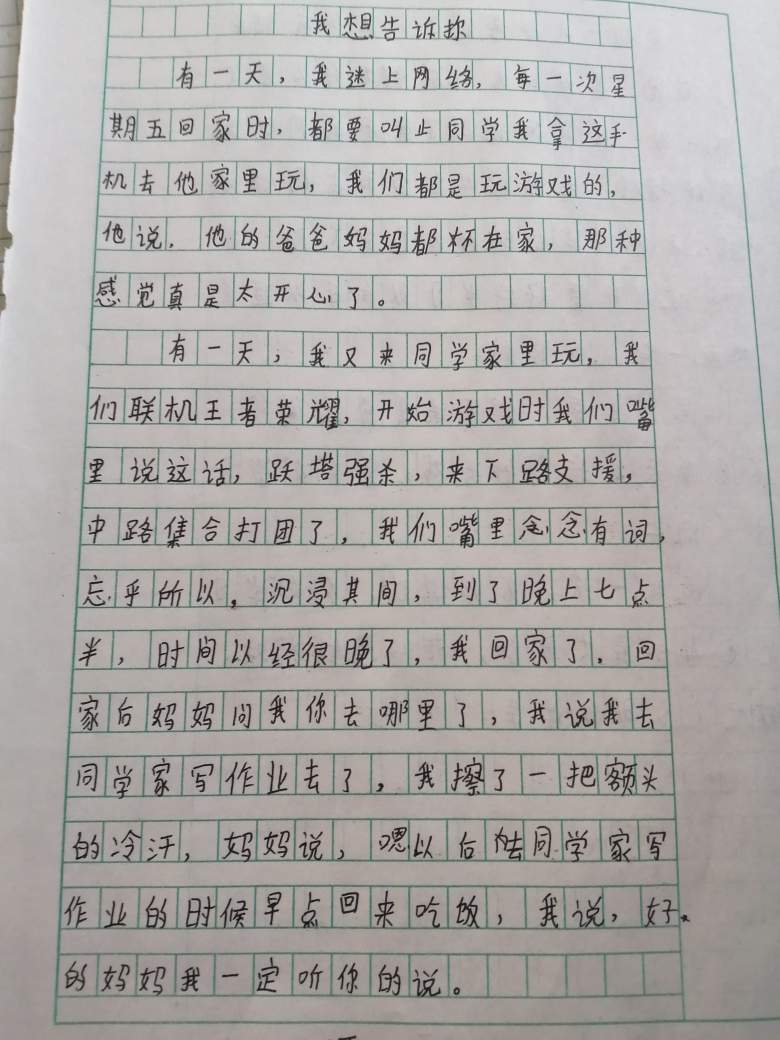 我想告诉你
有一天，我迷上网络，每一次星
期五回家时，都要叫上同学我拿这手
机去他家里玩，我们都是玩游戏的，
他说．他的爸爸妈妈都不在家，那种
感觉真是太开心了。
有一天，我又来同学家里玩，我
们联机王者荣耀，开始游戏时我们嘴
里说这话，跃塔强杀，来下路支援，
中路集合打团了，我们嘴里念念有词，
忘乎所以，沉浸其间，到了晚上七点
半，时间以经很晚了，我回家了．回
家后妈妈问我你去哪里了，我说我去
同学家写作业去了，我擦了一把额头
的冷汗，妈妈说，嗯以后去同学家写
作业的时候早点回来吃饭，我说，好
的妈妈我一定听你的说。